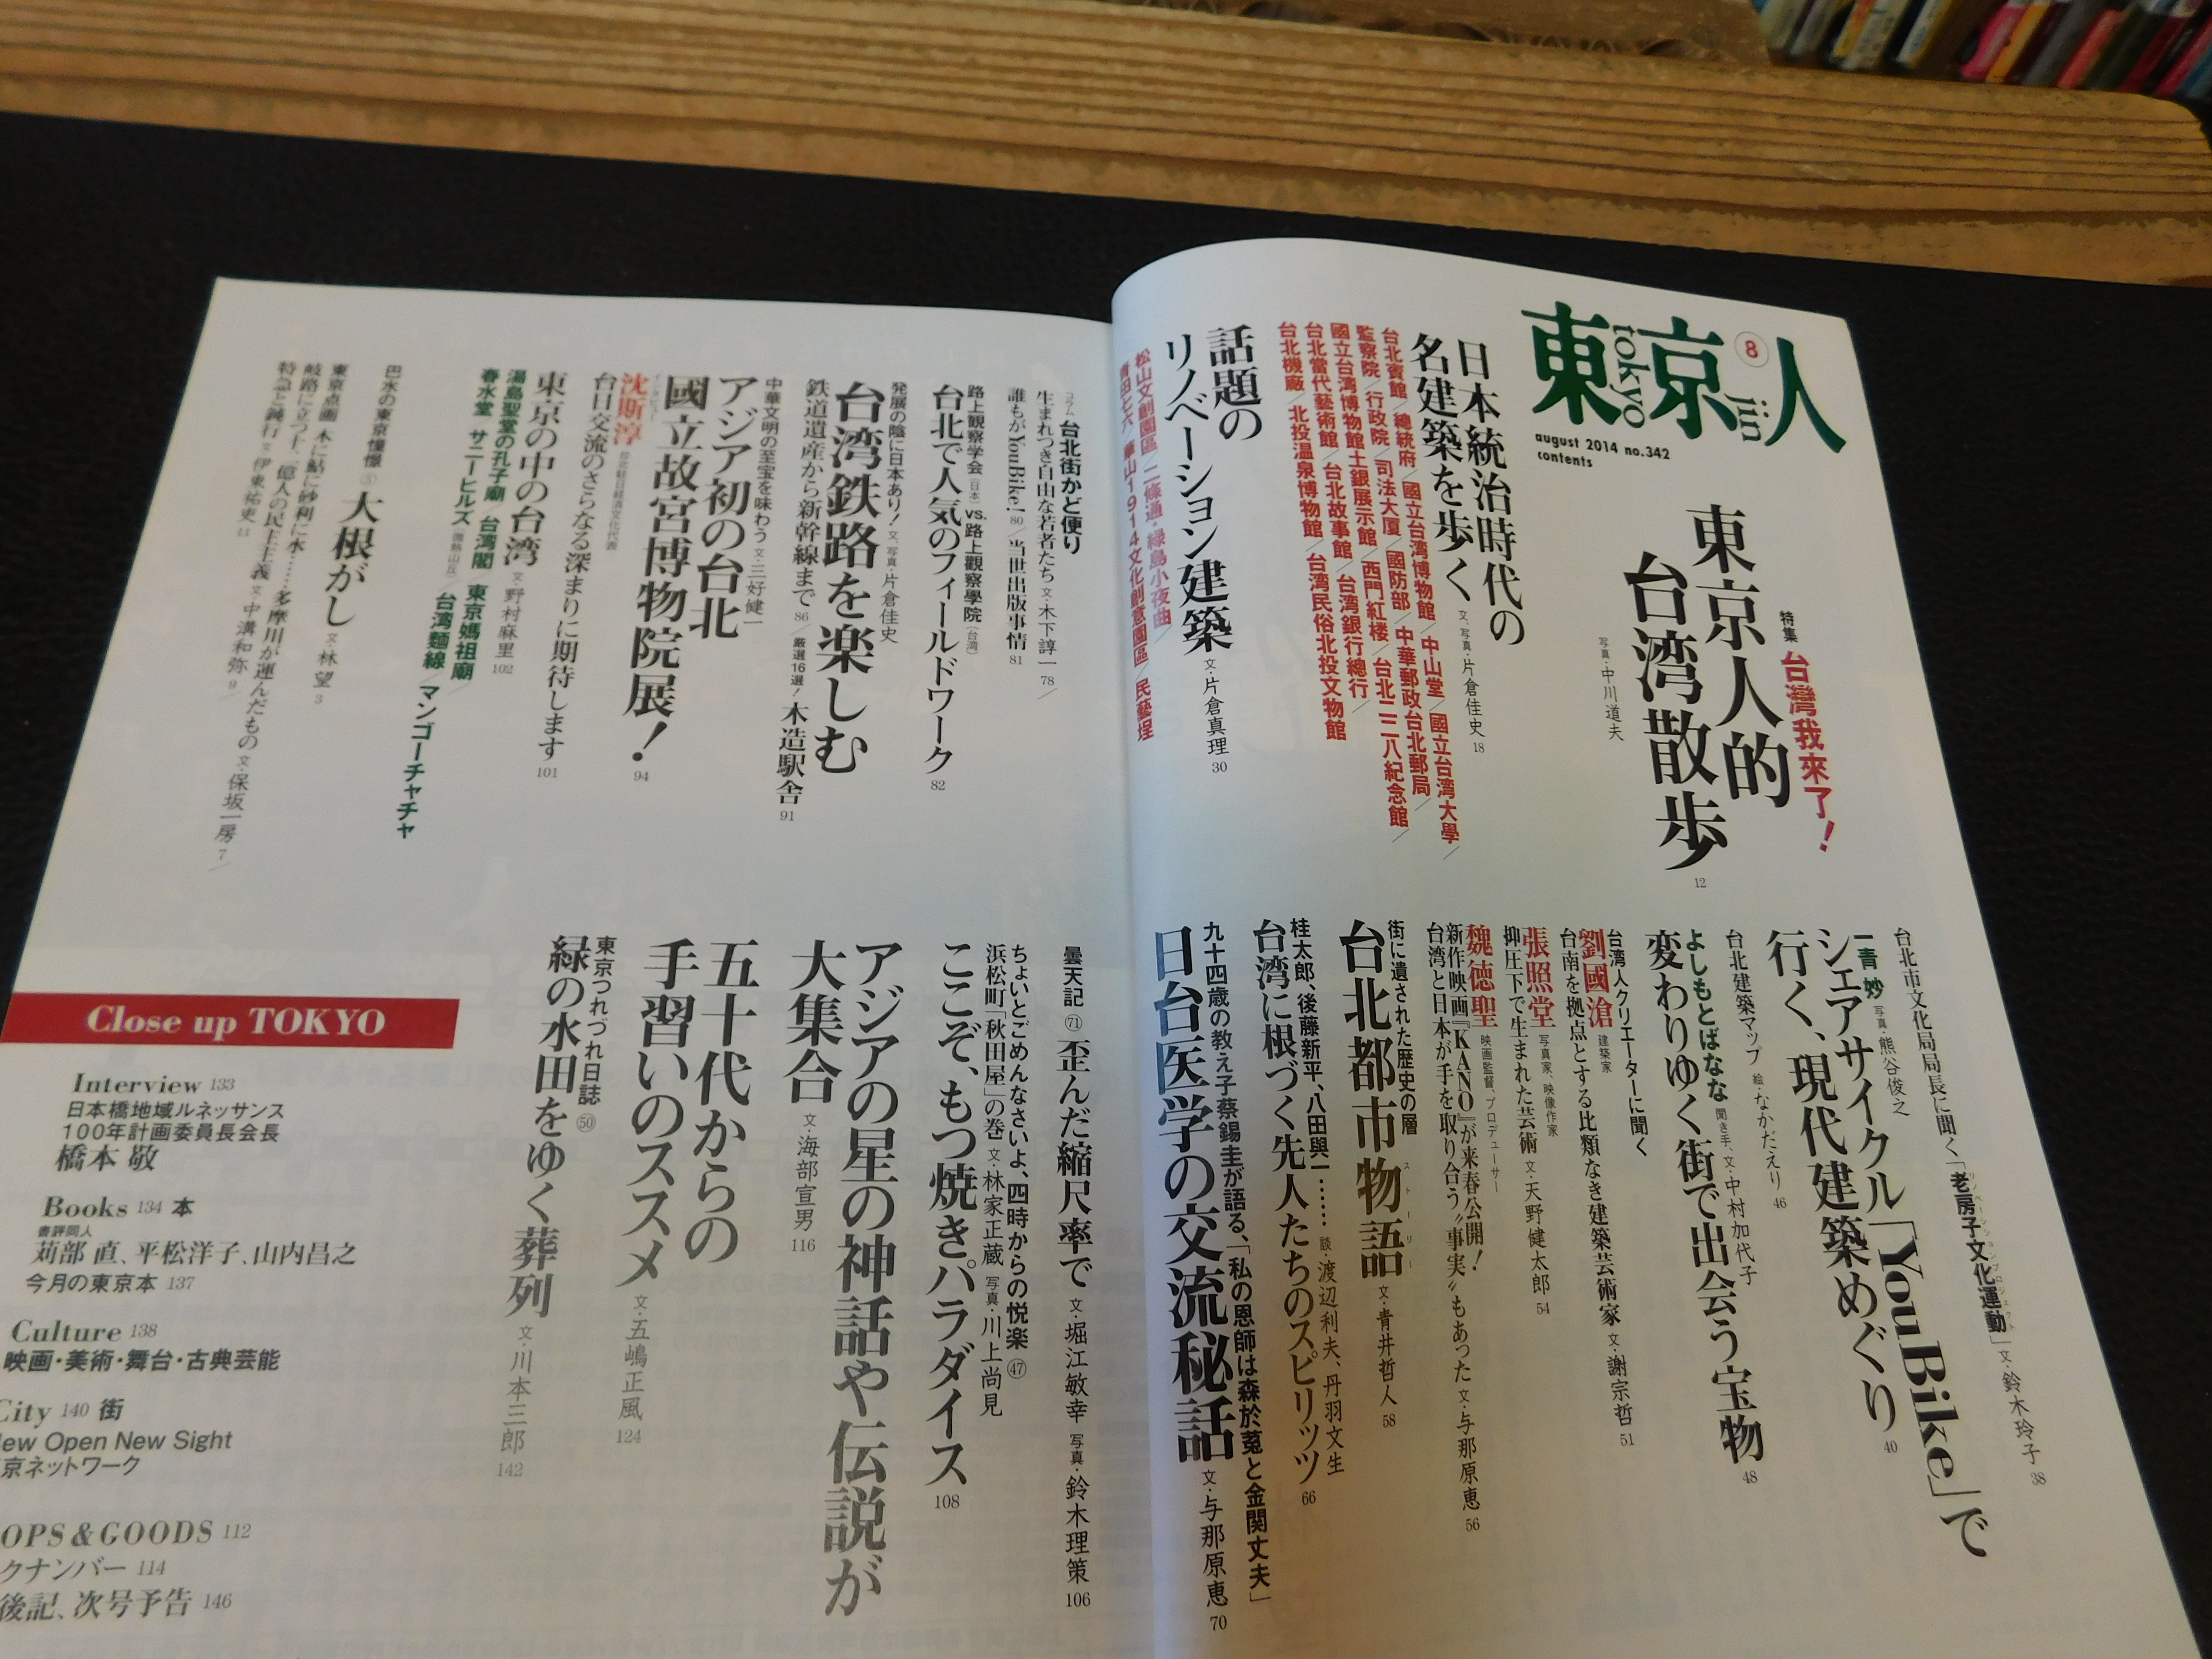 東京人
tokyo jin
8
august 2014 no.342
contents
特集 台灣我來了!
東京人的
台湾散歩
12
写真・中川道夫
日本統治時代の
名建築を歩く 文、写真・片倉佳史 18
台北賓館/總統府/國立台湾博物館/中山堂/國立台湾大學/
監察院/行政院/司法大厦/國防部/中華郵政台北郵局/
國立台湾博物館土銀展示館/西門紅楼/台北二二八紀念館/
台北當代藝術館/台北故事館/台湾銀行總行/
台北機廠/北投温泉博物館/台湾民俗北投文物館
話題の
リノベーション建築 文・片倉真理 30
松山文創園區/二條通・緑島小夜曲/
青田七六/華山1914文化創意園區/民藝埕
台北市文化局局長に聞く「老房子文化運動」 文・鈴木玲子 38
一青妙 写真・熊谷俊之
シェアサイクル「YouBike」で
行く、現代建築めぐり 40
台北建築マップ 絵・なかだえり 46
よしもとばなな 聞き手、文・中村加代子
変わりゆく街で出会う宝物 48
台湾人クリエーターに聞く
劉國滄 建築家
台南を拠点とする比類なき建築芸術家 文・謝宗哲 51
張照堂 写真家、映像作家
抑圧下で生まれた芸術 文・天野健太郎 54
魏徳聖 映画監督、プロデューサー
新作映画『KANO』が来春公開!
台湾と日本が手を取り合う〝事実〟もあった 文・与那原恵 56
街に遺された歴史の層
台北都市物語 文・青井哲人 58
ストーリー
桂太郎、後藤新平、八田與一……
台湾に根づく先人たちのスピリッツ 66
談・渡辺利夫、丹羽文生
九十四歳の教え子蔡錫圭が語る、「私の恩師は森於菟と金関丈夫」
日台医学の交流秘話 文・与那原恵 70
コラム 台北街かど便り
生まれつき自由な若者たち 文・木下諄一 78/
誰もがYouBike! 80/当世出版事情 81
路上観察学会(日本)vs.路上觀察學院(台湾)
台北で人気のフィールドワーク 82
発展の陰に日本あり! 文、写真・片倉佳史
台湾鉄路を楽しむ
鉄道遺産から新幹線まで 86/厳選16選!木造駅舎 91
中華文明の至宝を味わう 文・三好健一
アジア初の台北
國立故宮博物院展! 94
インタビュー
沈斯淳 台北駐日経済文化代表
台日交流のさらなる深まりに期待します 101
東京の中の台湾 文・野村麻里 102
湯島聖堂の孔子廟/台湾閣/東京媽祖廟/
春水堂/サニーヒルズ(微熱山丘)/台湾麺線/マンゴーチャチャ
巴水の東京憧憬⑤ 大根がし 文・林望 3
東京点画 木に鮎に砂利に水……多摩川が運んだもの 文・保坂一房 7/
岐路に立つ十二億人の民主主義 文・中溝和弥 9/
特急と鈍行 文・伊東祐吏 11
曇天記㋥ 歪んだ縮尺率で 文・堀江敏幸 写真・鈴木理策 106
ちょいとごめんなさいよ、四時からの悦楽㊼
浜松町「秋田屋」の巻 文・林家正蔵 写真・川上尚見
ここぞ、もつ焼きパラダイス 108
アジアの星の神話や伝説が
大集合 文・海部宣男 116
五十代からの
手習いのススメ 文・五嶋正風 124
東京つれづれ日誌㊿
緑の水田をゆく葬列 文・川本三郎 142
Close up TOKYO
Interview 133
日本橋地域ルネッサンス
100年計画委員長会長
橋本 敬
Books 134 本
書評同人
苅部 直、平松洋子、山内昌之
今月の東京本 137
Culture 138
映画・美術・舞台・古典芸能
City 140 街
New Open New Sight
京ネットワーク
OPS & GOODS 112
クナンバー 114
後記、次号予告 146